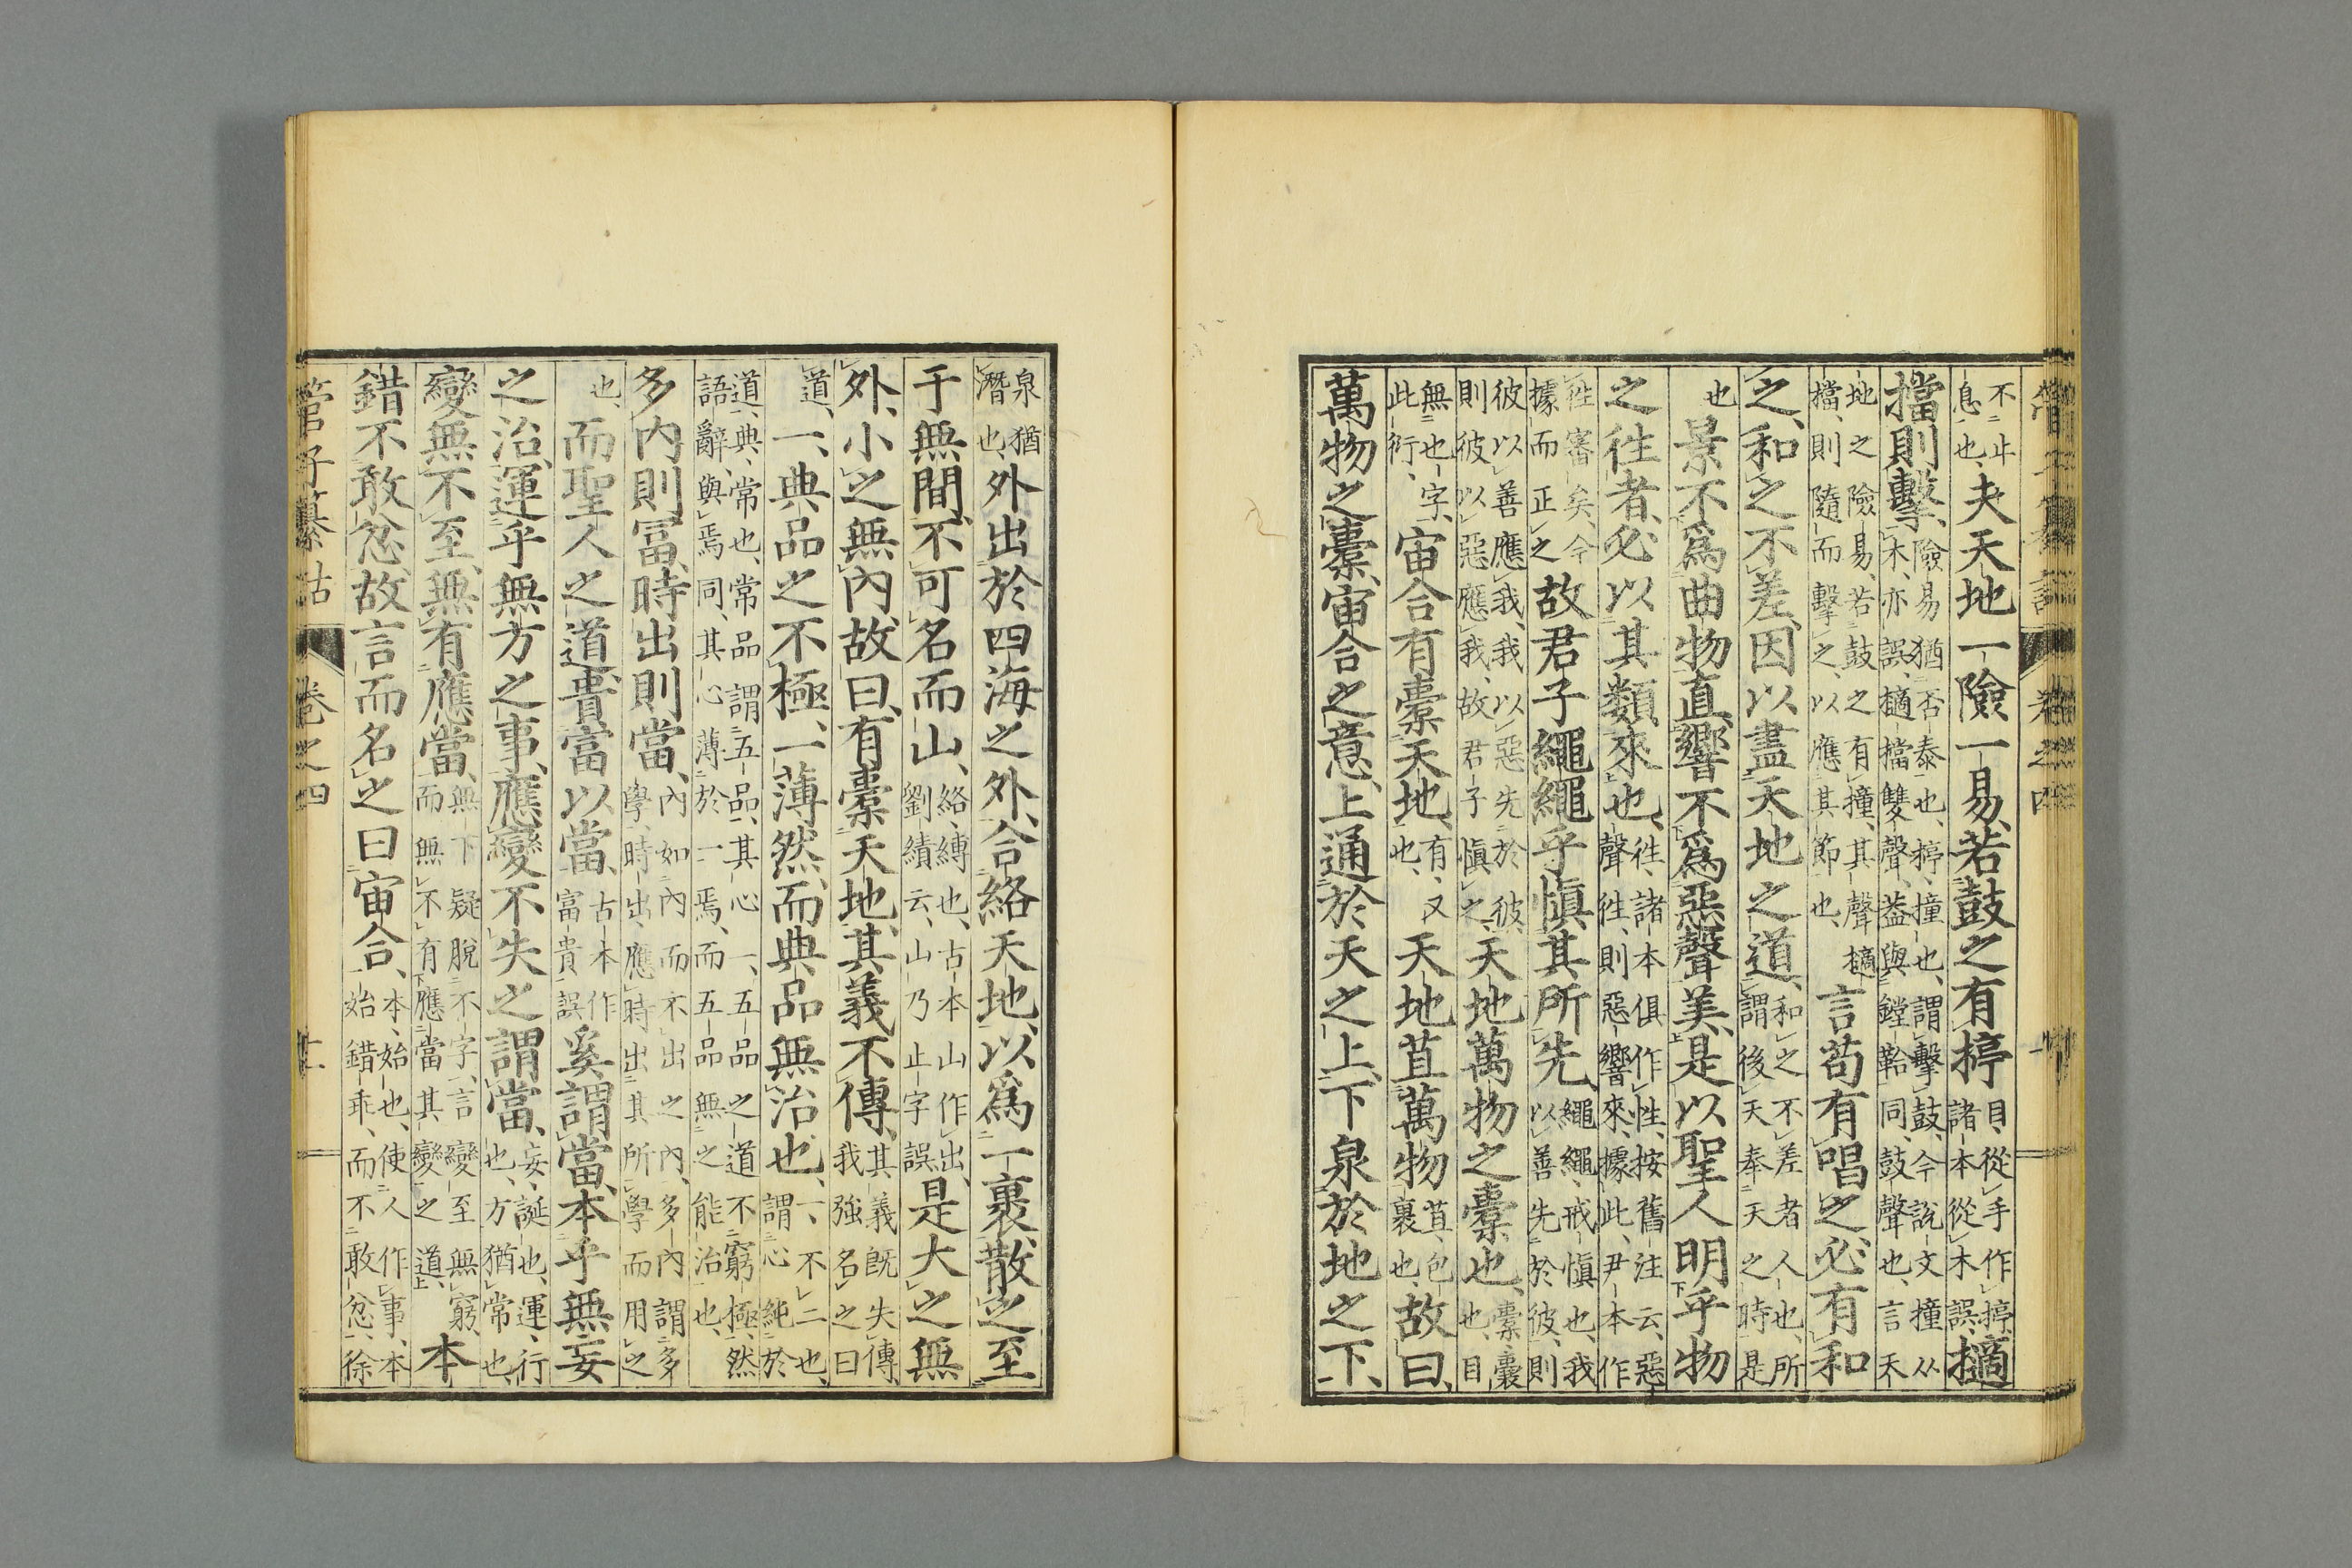 不止
息也、夫天地一險一易、若鼓之有㨪
目、從手作㨪、
諸本從木誤、擿
擋則擊、
險易猶否泰也、㨪撞也、謂擊鼓、今說文撞从
木、亦誤、擿擋雙聲、蓋與鏜鞈同、鼓聲也、言天
地之險易、若鼓之有撞、其聲擿
擋、則隨而擊之、以應其節也、
言苟有唱之、必有和
之、和之不差、因以盡天地之道、
和之不差者人也、所
謂後天奉天之時是
也
景不爲曲物直、響不爲惡聲美、是以聖人明乎物
之徃者、必以其類來也、
徃、諸本俱作性、按舊注云、惡
聲徃、則惡響來、據此、尹本作
徃審矣、今
據而正之
故君子繩繩乎愼其所先、
繩繩、戒愼也、我
以善先於彼、則
彼以善應我、我以惡先於彼、
則彼以惡應我、故君子愼之、
天地萬物之橐也、
橐、囊
也、目
無也字、
此衍、
宙合有橐天地、
有、又
也、
天地苴萬物
苴、包
裹也、
故曰、
萬物之橐、宙合之意、上通於天之上、下泉於地之下、
泉猶
潛也、
外出於四海之外、合絡天地、以爲一裹、散之至
于無間、不可名而山、
絡、縛也、古本山作出、
劉績云、山乃止字誤
是大之無
外、小之無內、故曰、有橐天地、其義不傳、
其義旣失傳、
我強名之曰
道、
一、典品之不極、一薄然、而典品無治也、
一、不二也、
謂心純於
道、典、常也、常品謂五品、其心一、五品之道不窮極、然
語辭、與焉同、其心薄於一焉、而五品無之能治也、
多內則富、時出則當、
內如內而不出之內、多內謂多
學、時出、應時出其所學而用之
也、
而聖人之道、貴富以當、
古本作
富貴誤
奚謂當、本乎無妄
之治、運乎無方之事、應變不失之謂當、
妄、誕也、運、行
也、方猶常也、
變無不至、無有應當、
無下疑脫不字、言變至無窮、
而無不有應當其變之道、
本
錯不敢忿、故言而名之曰宙合、
本、始也、使人作事、本
始錯乖、而不敢忿、徐
管子纂詁
卷之四
十一
卷之四